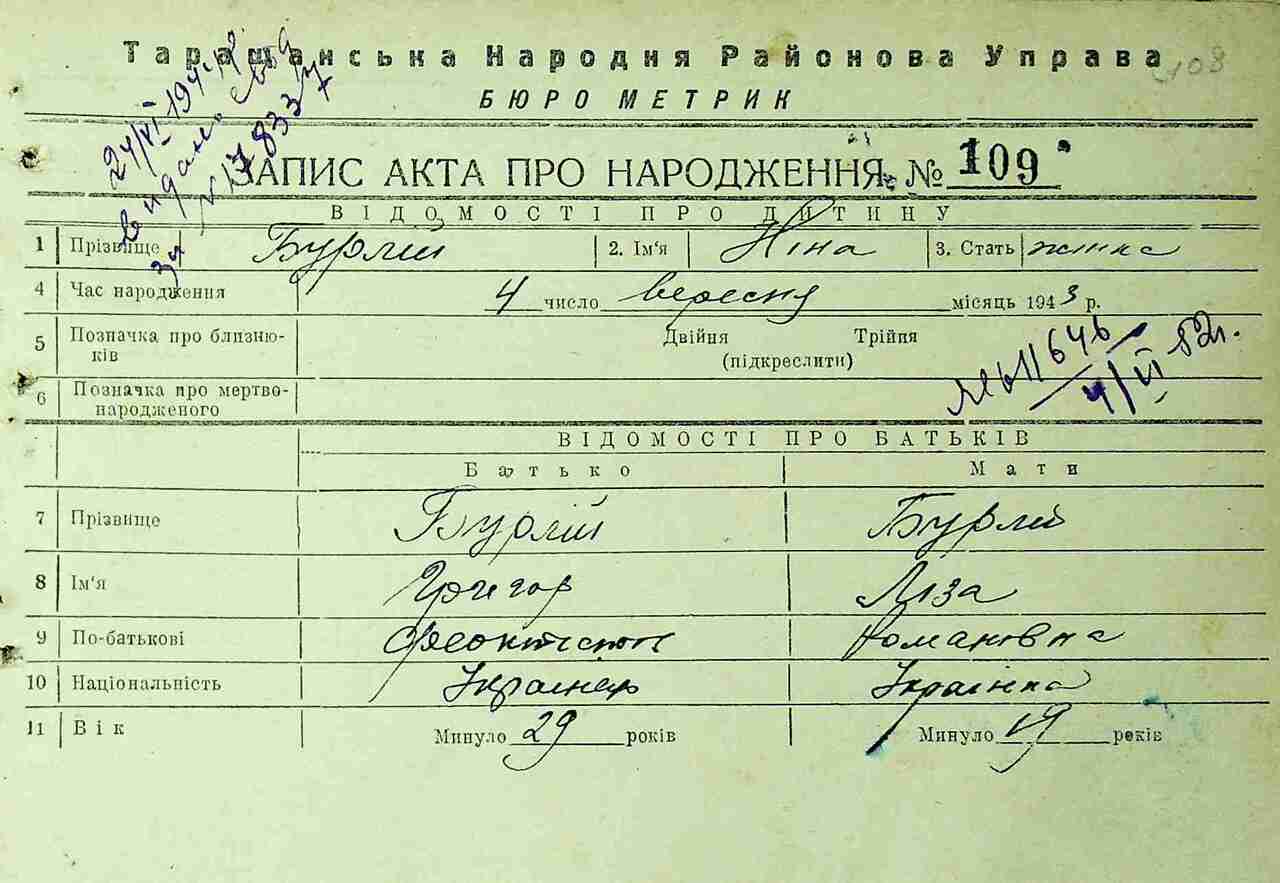 Таращанська Народня Районова Управа
108
БЮРО МЕТРИК
24/VI 194
видано
за № 178337
ЗАПИС АКТА ПРО НАРОДЖЕННЯ № 109
ВІДОМОСТІ ПРО ДИТИНУ
1 Прізвище Бурлій 2. Ім'я Ніна 3. Стать жінка
4 Час народження 4 число вересня місяць 1943 р.
5 Позначка про близнюків Двійня Трійня
(підкреслити)
611646
4/VI 52г.
6 Позначка про мертвонародженого
ВІДОМОСТІ ПРО БАТЬКІВ
Батько Мати
7 Прізвище Бурлій Бурлій
8 Ім'я Григор Ліза
9 По-батькові Романовна
10 Національність Українець Українка
11 Вік Минуло 29 років Минуло 19 років